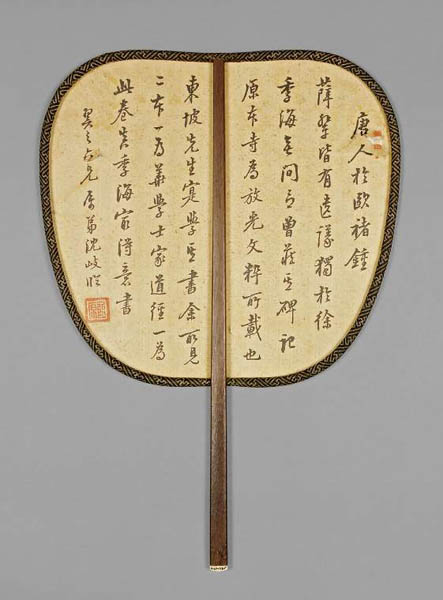 唐人於歐褚鍾
薛輩皆有遺議獨於徐
季海無間言曾藏其碑記
原本寺為放光文粹所載也
東坡先生寔學其書余所見
二本一為華學士家道經一為
此卷矣季海最得意書
兄屬弟沈岐臨